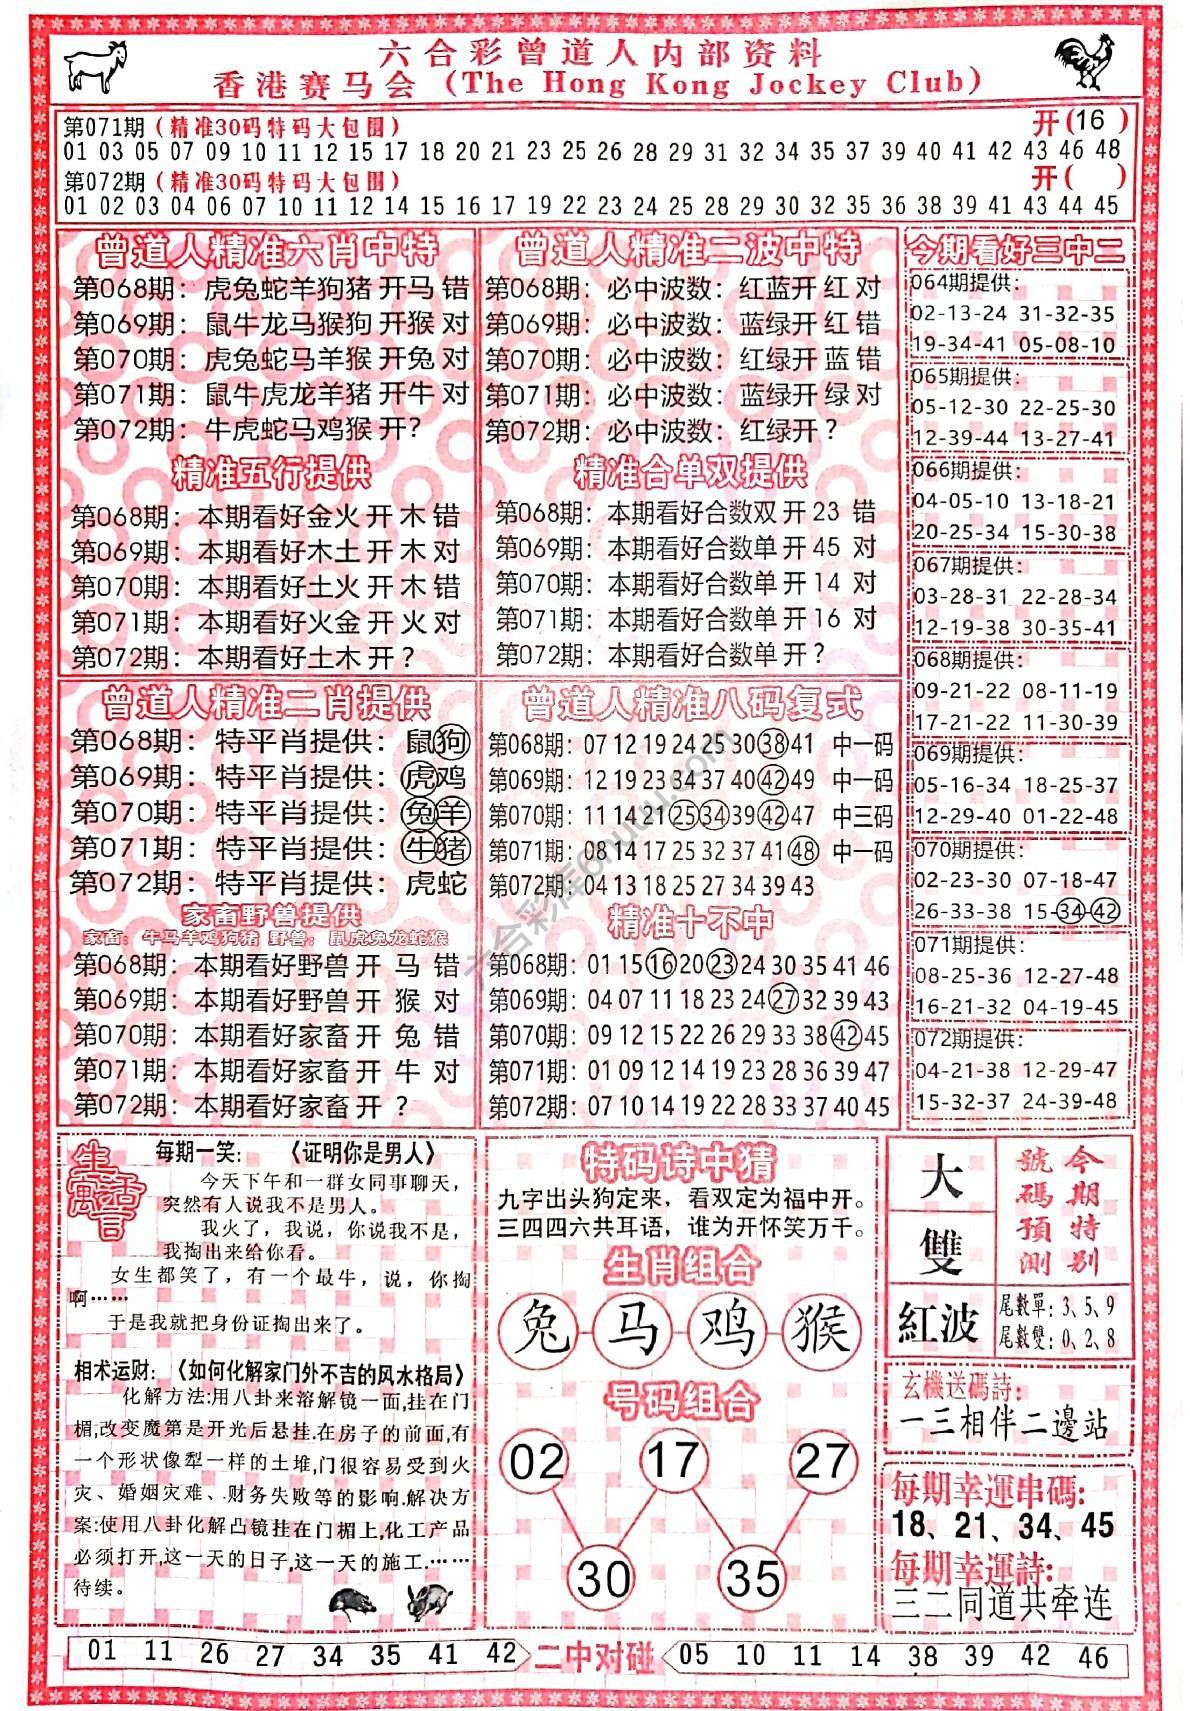 六合彩曾道人内部资料
香港赛马会 (The Hong Kong Jockey Club)
第071期(精准30码特码大包围) 开(16 )
01 03 05 07 09 10 11 12 15 17 18 20 21 23 25 26 28 29 31 32 34 35 37 39 40 41 42 43 46 48
第072期(精准30码特码大包围) 开( )
01 02 03 04 06 07 10 11 12 14 15 16 17 19 22 23 24 25 28 29 30 32 35 36 38 39 41 43 44 45
曾道人精准六肖中特
第068期：虎兔蛇羊狗猪开马 错
第069期：鼠牛龙马猴狗 开猴 对
第070期：虎兔蛇马羊猴 开兔 对
第071期：鼠牛虎龙羊猪 开牛 对
第072期：牛虎蛇马鸡猴 开?
精准五行提供
第068期：本期看好金火 开 木 错
第069期：本期看好木土 开 木 对
第070期：本期看好土火 开 木 错
第071期：本期看好火金 开 火 对
第072期：本期看好土木 开 ?
曾道人精准二波中特
第068期：必中波数：红蓝开 红 对
第069期：必中波数：蓝绿开 红 错
第070期：必中波数：红绿开 蓝 错
第071期：必中波数：蓝绿开 绿 对
第072期：必中波数：红绿开 ?
精准合单双提供
第068期：本期看好合数双 开 23 错
第069期：本期看好合数单 开 45 对
第070期：本期看好合数单 开 14 对
第071期：本期看好合数单 开 16 对
第072期：本期看好合数单 开 ?
今期看好三中二
064期提供：
02-13-24 31-32-35
19-34-41 05-08-10
065期提供：
05-12-30 22-25-30
12-39-44 13-27-41
066期提供：
04-05-10 13-18-21
20-25-34 15-30-38
067期提供：
03-28-31 22-28-34
12-19-38 30-35-41
068期提供：
09-21-22 08-11-19
17-21-22 11-30-39
069期提供：
05-16-34 18-25-37
12-29-40 01-22-48
070期提供：
02-23-30 07-18-47
26-33-38 15-34-42
071期提供：
08-25-36 12-27-48
16-21-32 04-19-45
072期提供：
04-21-38 12-29-47
15-32-37 24-39-48
曾道人精准二肖提供
第068期：特平肖提供：鼠狗
第069期：特平肖提供：虎鸡
第070期：特平肖提供：兔羊
第071期：特平肖提供：牛猪
第072期：特平肖提供：虎蛇
家畜野兽提供
家畜：牛马羊鸡狗猪 野兽：鼠虎兔龙蛇猴
第068期：本期看好野兽 开 马 错
第069期：本期看好野兽 开 猴 对
第070期：本期看好家畜 开 兔 错
第071期：本期看好家畜 开 牛 对
第072期：本期看好家畜 开 ?
曾道人精准八码复式
第068期：07 12 19 24 25 30 38 41 中一码
第069期：12 19 23 34 37 40 42 49 中一码
第070期：11 14 21 25 34 39 42 47 中三码
第071期：08 14 17 25 32 37 41 48 中一码
第072期：04 13 18 25 27 34 39 43
精准十不中
第068期：01 15 16 20 23 24 30 35 41 46
第069期：04 07 11 18 23 24 27 32 39 43
第070期：09 12 15 22 26 29 33 38 42 45
第071期：01 09 12 14 19 23 28 36 39 47
第072期：07 10 14 19 22 28 33 37 40 45
六合彩库
生活寓言
每期一笑：《证明你是男人》
今天下午和一群女同事聊天，
突然有人说我不是男人。
我火了，我说，你说我不是，
我掏出来给你看。
女生都笑了，有一个最牛，说，你掏
啊……
于是我就把身份证掏出来了。
相术运财:《如何化解家门外不吉的风水格局》
化解方法:用八卦来溶解镜一面,挂在门
楣,改变魔第是开光后悬挂.在房子的前面,有
一个形状像犁一样的土堆,门很容易受到火
灾、婚姻灾难、.财务失败等的影响.解决方
案:使用八卦化解凸镜挂在门楣上,化工产品
必须打开,这一天的日子,这一天的施工.……
待续。
特码诗中猜
九字出头狗定来，看双定为福中开。
三四四六共耳语，谁为开怀笑万千。
生肖组合
兔 马 鸡 猴
号码组合
02 17 27
30 35
大
雙
紅波
今期特别
號碼預測
尾數單：3、5、9
尾數雙：0、2、8
玄機送碼詩：
一三相伴二邊站
每期幸運串碼:
18、21、34、45
每期幸運詩:
三二同道共牵连
01 11 26 27 34 35 41 42 二中对碰 05 10 11 14 38 39 42 46